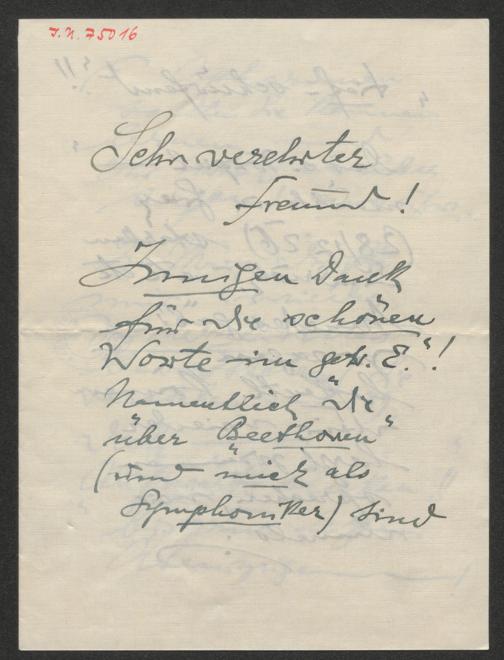 J.N. 75016
Sehr verehrter
Freund!
Innigen Dank
für die schönen
Worte im getr. E."!
Namentlich "die
über Beethoven"
(und "mich als
Symphoniker) sind